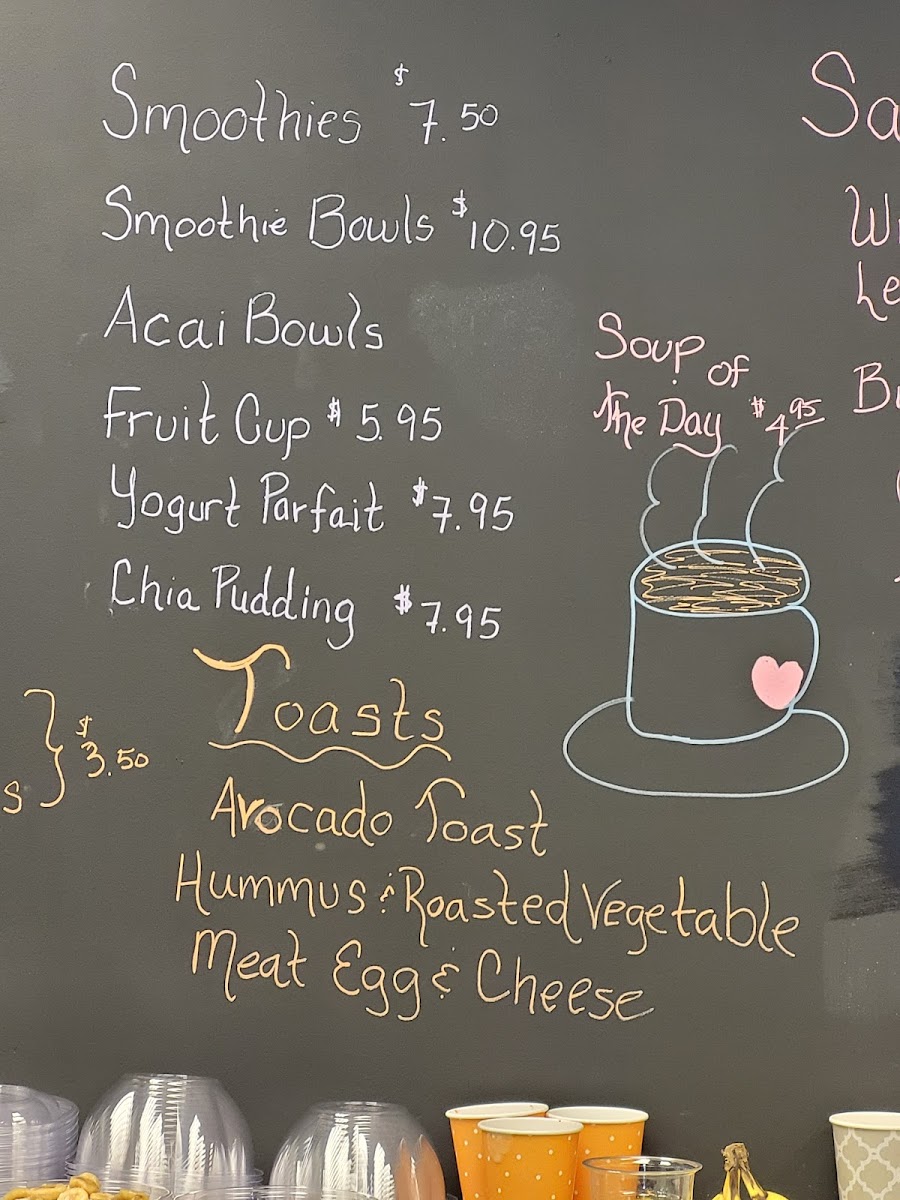 Smoothies $7.50
Smoothie Bowls $10.95
Acai Bowls
Fruit Cup $5.95
Yogurt Parfait $7.95
Chia Pudding $7.95
s } $3.50
Toasts
Avocado Toast
Hummus & Roasted Vegetable
Meat Egg & Cheese
Soup of
the Day $4.95
Sa
Wi
Le